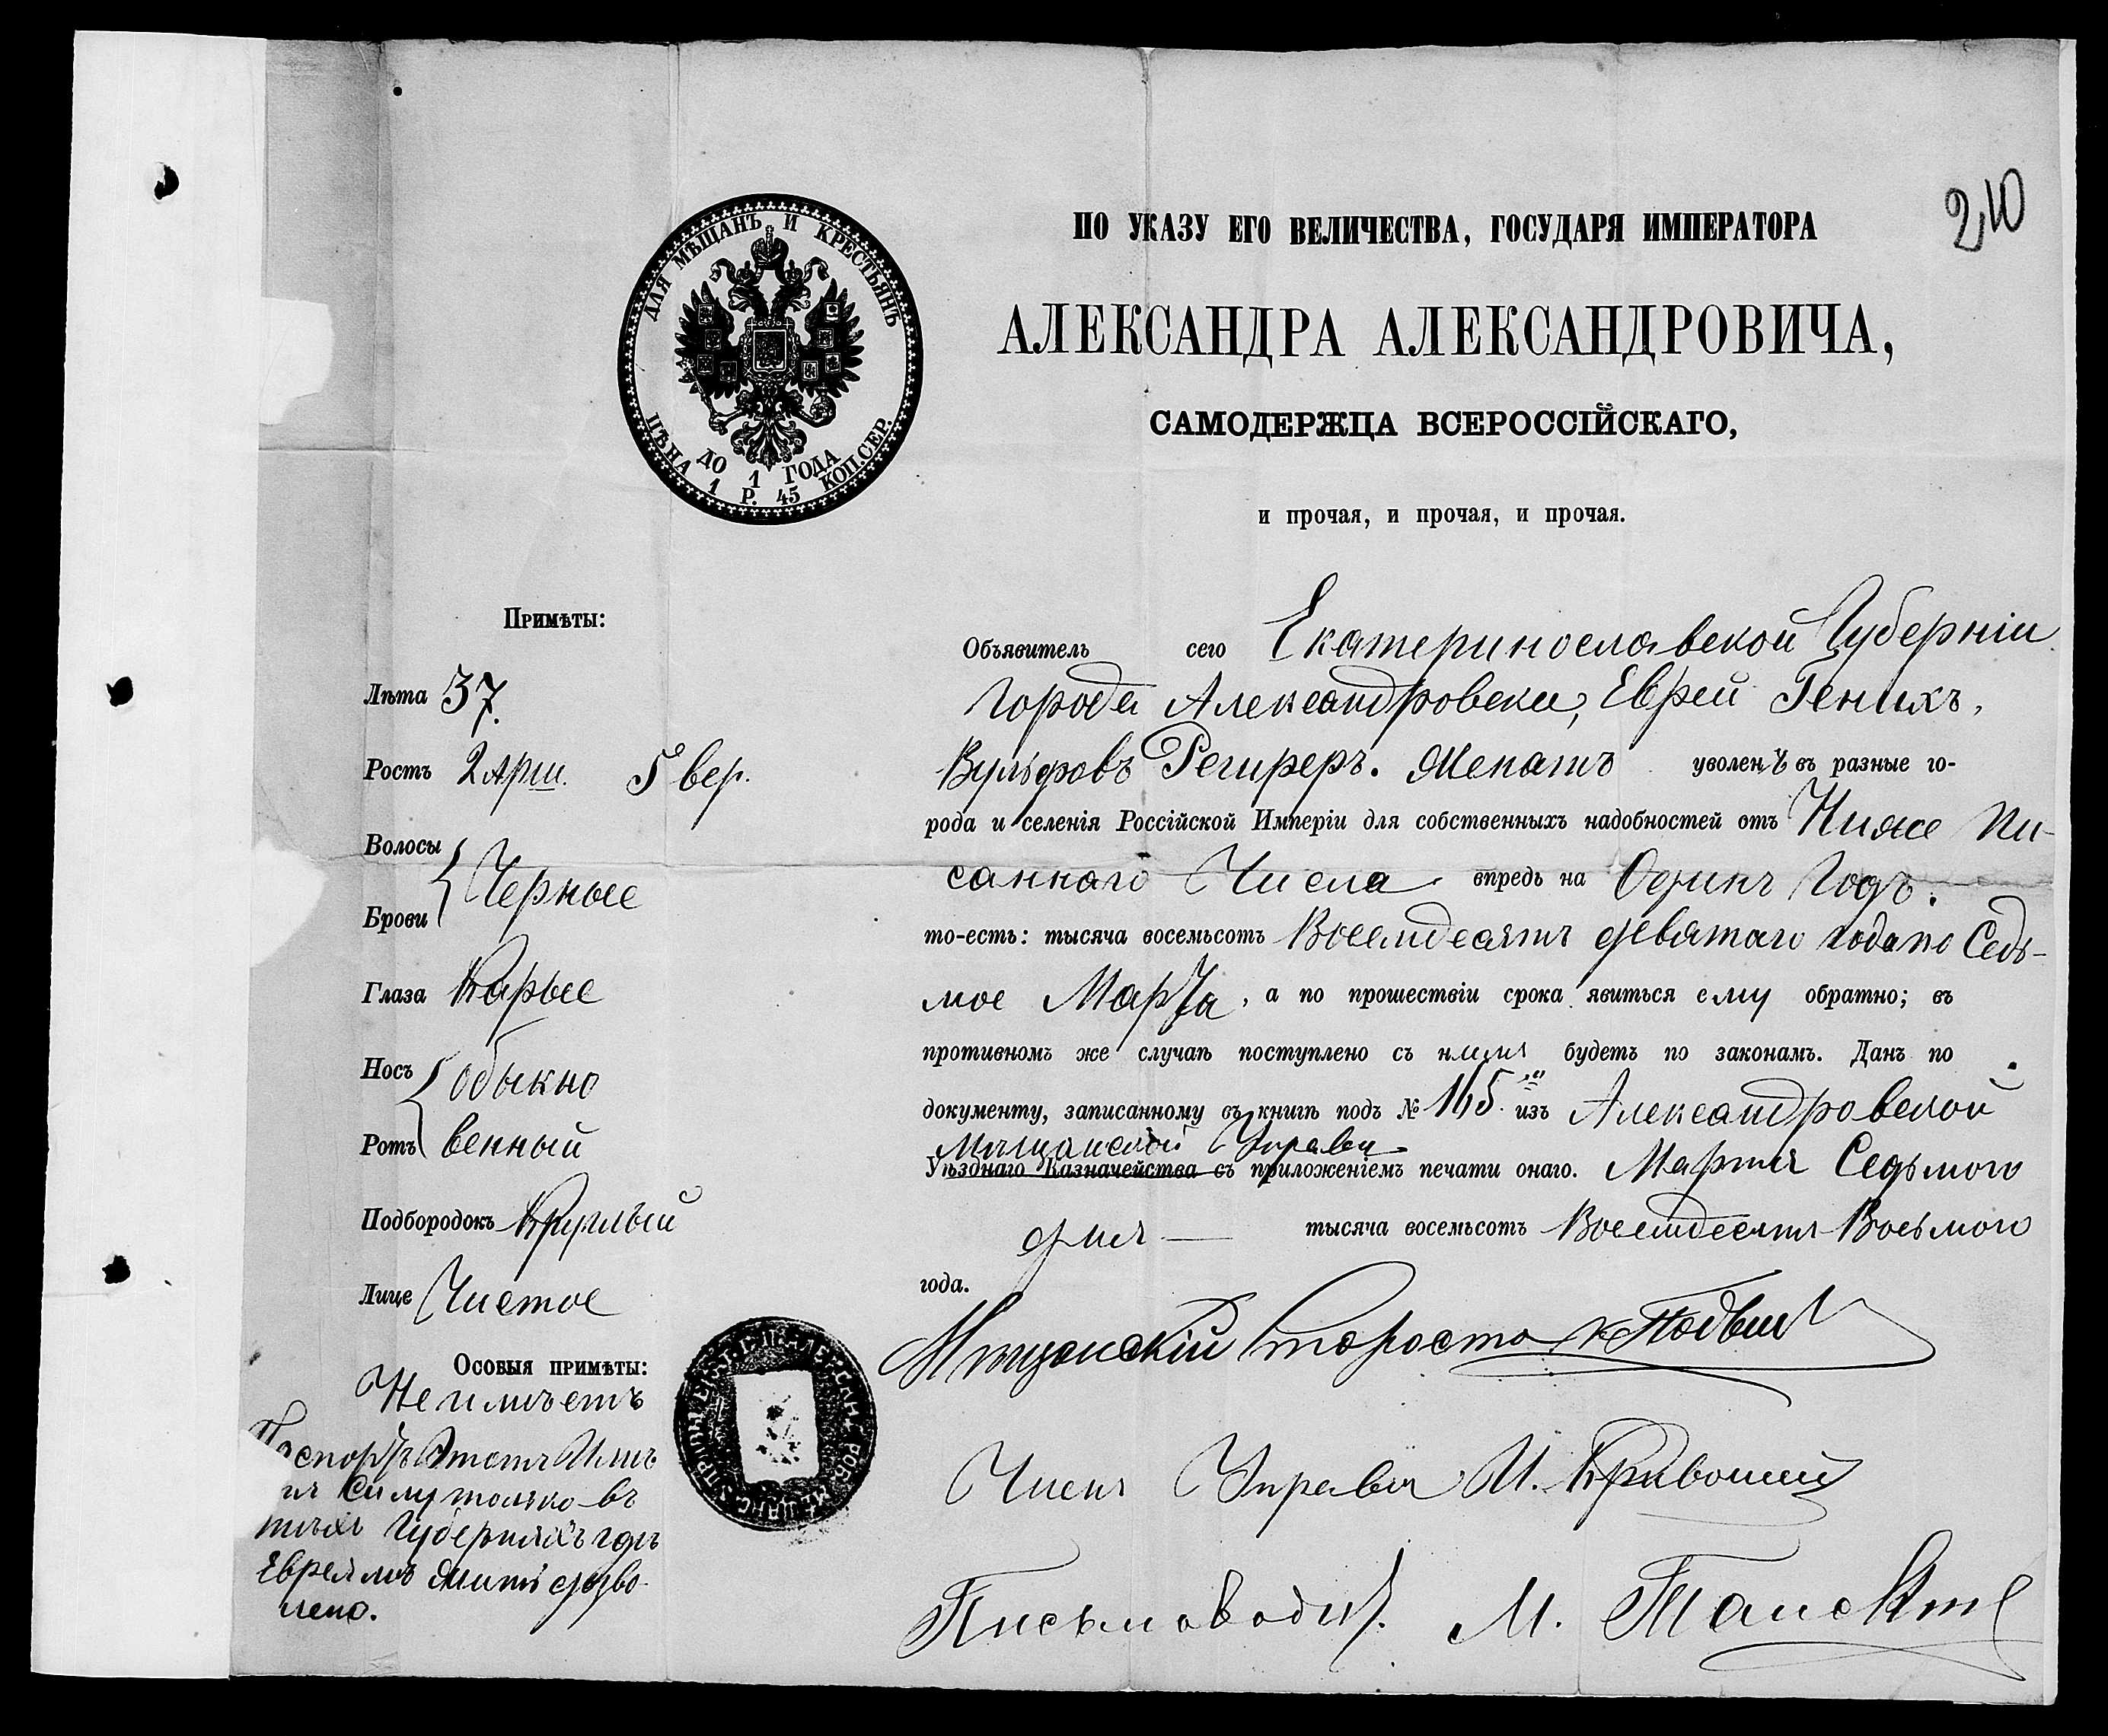 210
ДЛЯ МѢЩАНЪ И КРЕСТЬЯНЪ
ДО 1 ГОДА
ЦѢНА 1 Р. 45 КОП. СЕР.
ПО УКАЗУ ЕГО ВЕЛИЧЕСТВА, ГОСУДАРЯ ИМПЕРАТОРА
АЛЕКСАНДРА АЛЕКСАНДРОВИЧА,
САМОДЕРЖЦА ВСЕРОССІЙСКАГО,
и прочая, и прочая, и прочая.
Примѣты:
Лѣта 37.
Ростъ 2 Арш. 5 вер.
Волосы
Черные
Брови
Глаза Карые
Носъ
обыкно
Ротъ венный
Подбородокъ Круглый
Лице Чистое
Особыя примѣты:
Не имѣетъ
Паспортъ Этотъ Имѣ
Силу только въ
тѣхъ Губерніяхъ гдѣ
Евреямъ жить дозво-
лено.
Объявитель сего Екатеринославской Губерніи
города Александровска, Еврей Генихъ,
Вульфовъ Региреръ. Женатъ уволенъ въ разные го-
рода и селенія Россійской Имперіи для собственныхъ надобностей отъ Ниже пи-
саннаго Числа впредь на Одинъ Годъ.
то-есть: тысяча восемьсотъ Восемдесятъ девятаго года по Седь-
мое Марта, а по прошествіи срока явиться ему обратно; въ
противномъ же случаѣ поступлено съ нимъ будетъ по законамъ. Данъ по
документу, записанному въ книгѣ подъ № 165 изъ Александровской
Мѣщанской Управы
Уѣзднаго Казначейства съ приложеніемъ печати онаго. Марта Седьмого
дня — тысяча восемьсотъ Восемдесятъ Восьмого
года.
Мѣщанскій Староста
Членъ Управы И. Кривошей
Письмоводит. М.